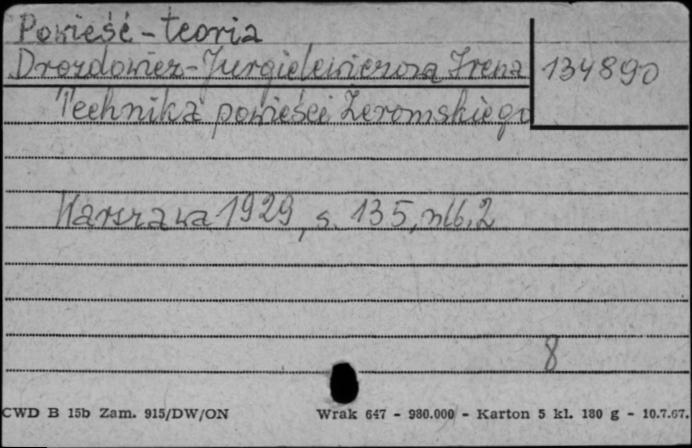 Powieść - teoria
Drozdowicz-Jurgielewiczowa Irena
134890
Technika powieści Żeromskiego
Warszawa 1929, s. 135, nlb. 2
8
CWD B 15b Zam. 915/DW/ON Wrak 647 - 980.000 - Karton 5 kl. 180 g - 10.7.67.